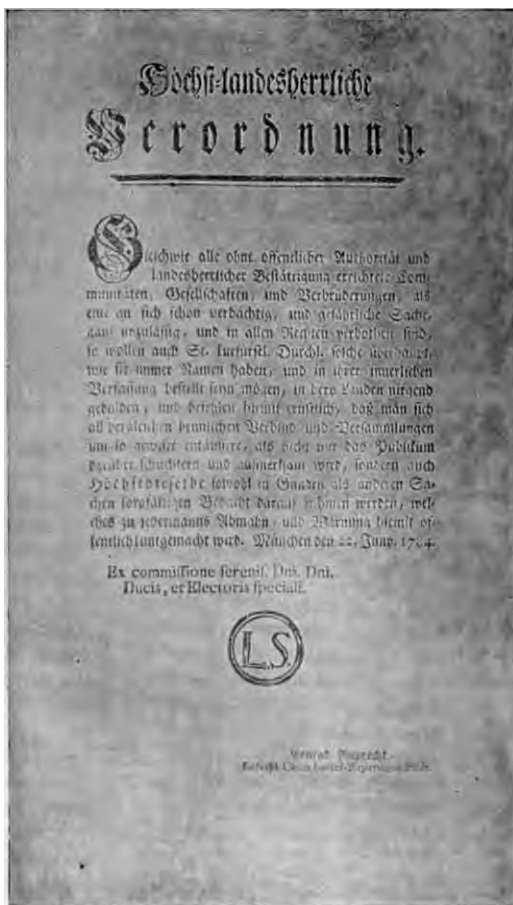 Höchst-landesherrliche
Verordnung.
Gleichwie alle ohne offentlicher Authorität und
landesherrlicher Bestättigung errichtete Com-
munitäten, Gesellschaften, und Verbrüderungen, als
eine an sich schon verdächtig, und gefährliche Sache,
ganz unzuläßig, und in allen Rechten verbothen sind,
so wollen auch Se. kurfürstl. Durchl. solche überhaupt,
wie sie immer Namen haben, und in ihrer innerlichen
Verfassung bestellt seyn mögen, in dero Landen nirgend
gedulden, und befehlen hiemit ernstlich, daß man sich
all dergleichen heimlichen Verbind- und Versammlungen
um so gewisser entäussere, als nicht nur das Publikum
darüber schüchtern und aufmerksam wird, sondern auch
Höchstdieselbe sowohl in Gnaden als anderen Sa-
chen sorgfältigen Bedacht darauf nehmen werden, wel-
ches zu jedermanns Abmahn- und Warnung hiemit of-
fentlich kuntgemacht wird. München den 22. Juny. 1784.
Ex commissione sereniss. Dni. Dni.
Ducis, et Electoris speciali.
L.S.